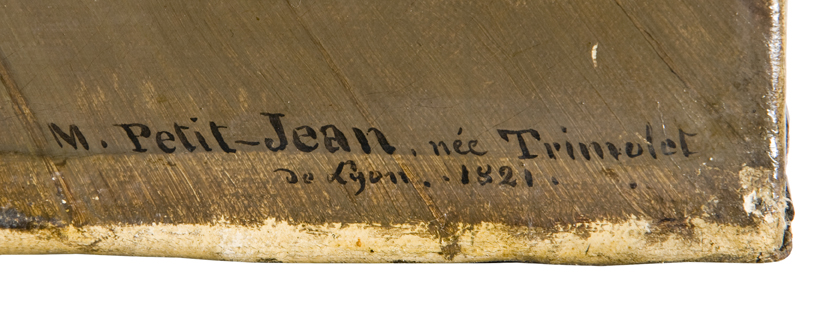 M. Petit-Jean, née Trimolet
de Lyon. 1821.